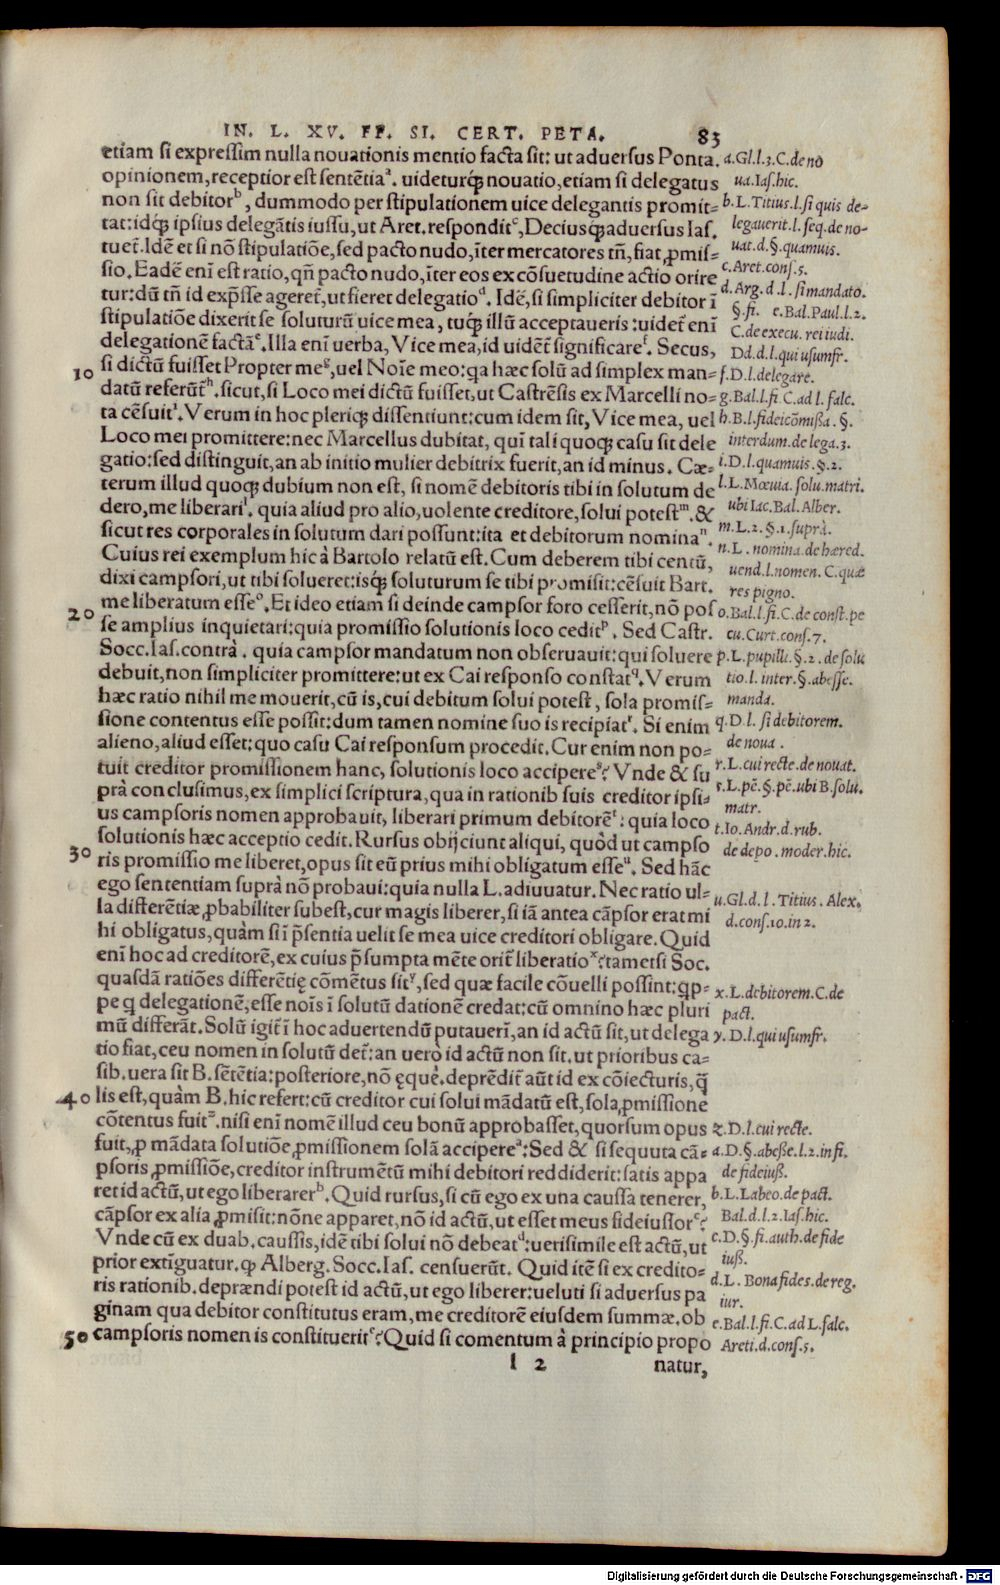 IN. L. XV. FF. SI. CERT. PETA. 83
etiam si expressim nulla nouationis mentio facta sit: ut aduersus Ponta.
opinionem, receptior est sentẽtiaᵃ. uideturq́; nouatio, etiam si delegatus
non sit debitorᵇ, dummodo per stipulationem uice delegantis promit=
tat: idq́; ipsius delegãtis iussu, ut Aret. responditᶜ, Deciusq́; aduersus Ias.
tuet̃. Idẽ et si nõ stipulatiõe, sed pacto nudo, ĩter mercatores tñ, fiat, ꝓmis=
sio. Eadẽ eñi est ratio, qñ pacto nudo, ĩter eos ex cõsuetudine actio orire
tur: dũ tñ id exp̃sse ageret̃, ut fieret delegatioᵈ. Idẽ, si simpliciter debitor ĩ
stipulatiõe dixerit se soluturũ uice mea, tuq́; illũ acceptaueris: uidet̃ eñi
delegationẽ factãᵉ. Illa eñi uerba, Vice mea, id uidẽt̃ significareᶠ. Secus,
10 si dictũ fuisset Propter meᵍ, uel Noĩe meo: qa hæc solũ ad simplex man=
datũ referũt̃ʰ. sicut, si Loco mei dictũ fuisset, ut Castrẽsis ex Marcelli no=
ta cẽsuitⁱ. Verum in hoc pleriq́; dissentiunt: cum idem sit, Vice mea, uel
Loco mei promittere: nec Marcellus dubitat, quĩ tali quoq́; casu sit dele
gatio: sed distinguit, an ab initio mulier debitrix fuerit, an id minus. Cæ=
terum illud quoq́; dubium non est, si nomẽ debitoris tibi in solutum de
dero, me liberariˡ. quia aliud pro alio, uolente creditore, solui potestᵐ. &
sicut res corporales in solutum dari possunt: ita et debitorum nominaⁿ.
Cuius rei exemplum hic à Bartolo relatũ est. Cum deberem tibi centũ,
dixi campsori, ut tibi solueret: isq́; soluturum se tibi promisit: cẽsuit Bart.
me liberatum esseᵒ. Et ideo etiam si deinde campsor foro cesserit, nõ pos
20 se amplius inquietari: quia promissio solutionis loco ceditᵖ. Sed Castr.
Socc. Ias. contrà. quia campsor mandatum non obseruauit: qui soluere
debuit, non simpliciter promittere: ut ex Cai responso constat^q. Verum
hæc ratio nihil me mouerit, cũ is, cui debitum solui potest, sola promis=
sione contentus esse possit: dum tamen nomine suo is recipiatʳ. Si enim
alieno, aliud esset: quo casu Cai responsum procedit. Cur enim non po=
tuit creditor promissionem hanc, solutionis loco accipereˢ? Vnde & su
prà conclusimus, ex simplici scriptura, qua in rationib suis creditor ipsi=
us campsoris nomen approbauit, liberari primum debitorẽᵗ: quia loco
solutionis hæc acceptio cedit. Rursus obijciunt aliqui, quòd ut campso
30 ris promissio me liberet, opus sit eũ prius mihi obligatum esseᵘ. Sed hãc
ego sententiam suprà nõ probaui: quia nulla L. adiuuatur. Nec ratio ul=
la differẽtiæ ꝓbabiliter subest, cur magis liberer, si iã antea cãpsor erat mi
hi obligatus, quàm si ĩ p̃sentia uelit se mea uice creditori obligare. Quid
eñi hoc ad creditorẽ, ex cuius p̃sumpta mẽte orit̃ liberatioˣ? tametsi Soc.
quasdã ratiões differẽtię cõmẽtus sitʸ, sed quæ facile cõuelli possint: ꝙp=
pe q delegationẽ, esse noĩs ĩ solutũ dationẽ credat: cũ omnino hæc pluri
mũ differãt. Solũ igit̃ ĩ hoc aduertendũ putauerĩ, an id actũ sit, ut delega
tio fiat, ceu nomen in solutũ det̃: an uerò id actũ non sit. ut prioribus ca=
sib. uera sit B. sẽtẽtia: posteriore, nõ ęquè. deprẽdit̃ aũt id ex cõiecturis, q̃
40 lis est, quàm B. hic refert: cũ creditor cui solui mãdatũ est, sola ꝓmissione
cõtentus fuitᶻ. nisi eñi nomẽ illud ceu bonũ approbasset, quorsum opus
fuit, ꝓ mãdata solutiõe ꝓmissionem solã accipereᵃ: Sed & si sequuta cã=
psoris ꝓmissiõe, creditor instrumẽtũ mihi debitori reddiderit: satis appa
ret id actũ, ut ego liberarerᵇ. Quid rursus, si cũ ego ex una caussa tenerer,
cãpsor ex alia ꝓmisit: nõne apparet, nõ id actũ, ut esset meus fideiussorᶜ?
Vnde cũ ex duab. caussis, idẽ tibi solui nõ debeatᵈ: uerisimile est actũ, ut
prior extĩguatur. ꝙ Alberg. Socc. Ias. censuerũt. Quid itẽ si ex credito=
ris rationib. deprændi potest id actũ, ut ego liberer: ueluti si aduersus pa
ginam qua debitor constitutus eram, me creditorẽ eiusdem summæ. ob
50 campsoris nomen is constitueritᵉ? Quid si comentum à principio propo
l 2 natur,
a. Gl. l. 3. C. de no
ua. Ias. hic.
b. L. Titius. l. si quis de=
legauerit. l. seq. de no=
uat. d. §. quamuis.
c. Aret. cons. 5.
d. Arg. d. l. si mandato.
§. fi. e. Bal. Paul. l. 2.
C. de execu. rei iudi.
Dd. d. l. qui usumfr.
f. D. l. delegare.
g. Bal. l. fi. C. ad l. falc.
h. B. l. fideicõmissa. §.
interdum. de lega. 3.
i. D. l. quamuis. §. 2.
l. L. Mœuia. solu. matri.
ubi Iac. Bal. Alber.
m. L. 2. §. 1. suprà.
n. L. nomina. de hæred.
uend. l. nomen. C. quæ
res pigno.
o. Bal. l. fi. C. de const. pe
cu. Curt. cons. 7.
p. L. pupilli. §. 2. de solu
tio. l. inter. §. abesse.
manda.
q. D. l. si debitorem.
de noua.
r. L. cui recte. de nouat.
s. L. pẽ. §. pẽ. ubi B. solu.
matr.
t. Io. Andr. d. rub.
de depo. moder. hic.
u. Gl. d. l. Titius. Alex.
d. cons. 10. in 2.
x. L. debitorem. C. de
pact.
y. D. l. qui usumfr.
z. D. l. cui recte.
a. D. §. abesse. l. 2. in fi.
de fideiuss.
b. L. Labeo. de pact.
Bal. d. l. 2. Ias. hic.
c. D. §. fi. auth. de fide
iuss.
d. L. Bona fides. de reg.
iur.
e. Bal. l. fi. C. ad L. falc.
Areti. d. cons. 5.
Digitalisierung gefördert durch die Deutsche Forschungsgemeinschaft - DFG